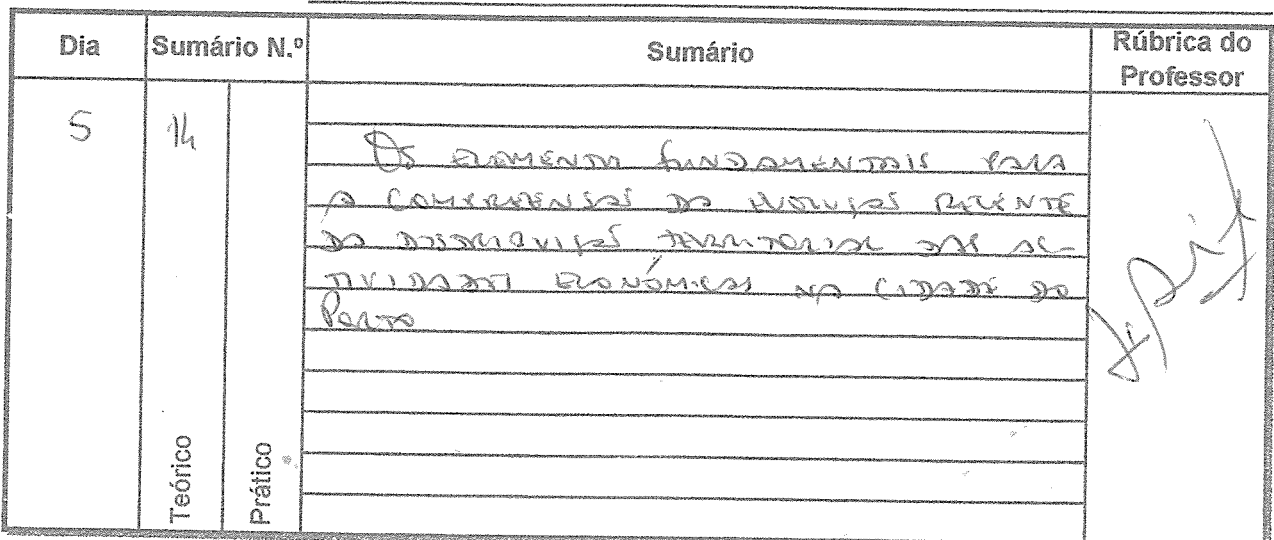 Dia Sumário N.º Sumário Rúbrica do Professor
5 14
Os ELEMENTOS FUNDAMENTAIS PARA
A COMPREENSÃO DA EVOLUÇÃO RECENTE
DA DISTRIBUIÇÃO TERRITORIAL DAS AC-
TIVIDADES ECONÓMICAS NA CIDADE DO
PORTO
Teórico Prático